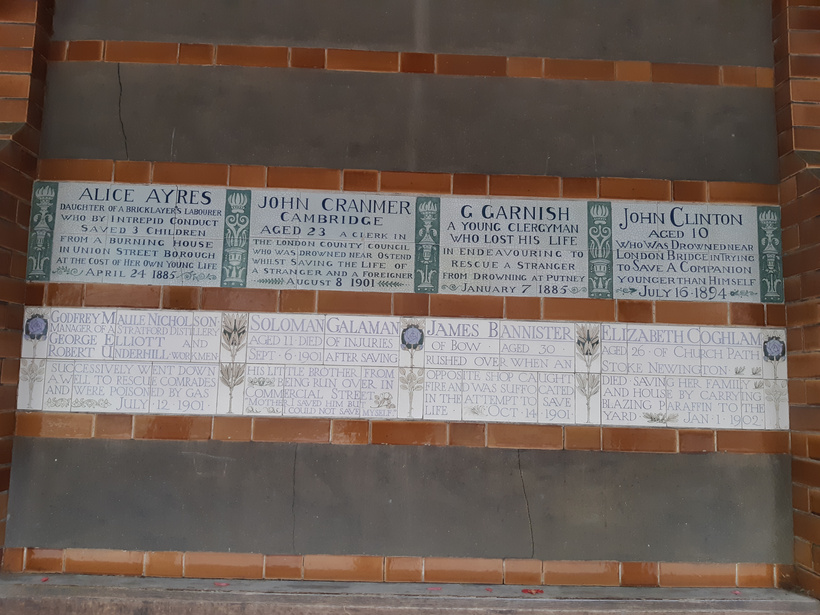 ALICE AYRES
DAUGHTER OF A BRICKLAYER'S LABOURER
WHO BY INTREPID CONDUCT
SAVED 3 CHILDREN
FROM A BURNING HOUSE
IN UNION STREET BOROUGH
AT THE COST OF HER OWN YOUNG LIFE
APRIL 24 1885
JOHN CRANMER
CAMBRIDGE
AGED 23 A CLERK IN
THE LONDON COUNTY COUNCIL
WHO WAS DROWNED NEAR OSTEND
WHILST SAVING THE LIFE OF
A STRANGER AND A FOREIGNER
AUGUST 8 1901
G GARNISH
A YOUNG CLERGYMAN
WHO LOST HIS LIFE
IN ENDEAVOURING TO
RESCUE A STRANGER
FROM DROWNING AT PUTNEY
JANUARY 7 1885
JOHN CLINTON
AGED 10
WHO WAS DROWNED NEAR
LONDON BRIDGE IN TRYING
TO SAVE A COMPANION
YOUNGER THAN HIMSELF
JULY 16 1894
GODFREY MAULE NICHOLSON
MANAGER OF A STRATFORD DISTILLERY
GEORGE ELLIOTT AND
ROBERT UNDERHILL WORKMEN
SUCCESSIVELY WENT DOWN
A WELL TO RESCUE COMRADES
AND WERE POISONED BY GAS
JULY 12 1901
SOLOMAN GALAMAN
AGED 11 DIED OF INJURIES
SEPT 6 1901 AFTER SAVING
HIS LITTLE BROTHER FROM
BEING RUN OVER IN
COMMERCIAL STREET
MOTHER I SAVED HIM BUT I
COULD NOT SAVE MYSELF
JAMES BANNISTER
OF BOW AGED 30
RUSHED OVER WHEN AN
OPPOSITE SHOP CAUGHT
FIRE AND WAS SUFFOCATED
IN THE ATTEMPT TO SAVE
LIFE OCT 14 1901
ELIZABETH COGHLAM
AGED 26 OF CHURCH PATH
STOKE NEWINGTON
DIED SAVING HER FAMILY
AND HOUSE BY CARRYING
BLAZING PARAFFIN TO THE
YARD JAN 1 1902